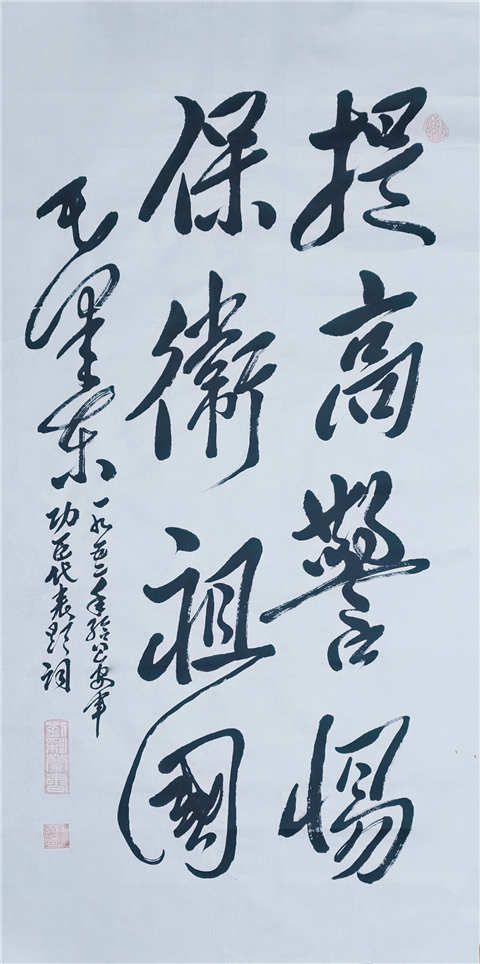 提高警惕
保衛祖國
毛澤东
一九五二年给公安军
功臣代表题词